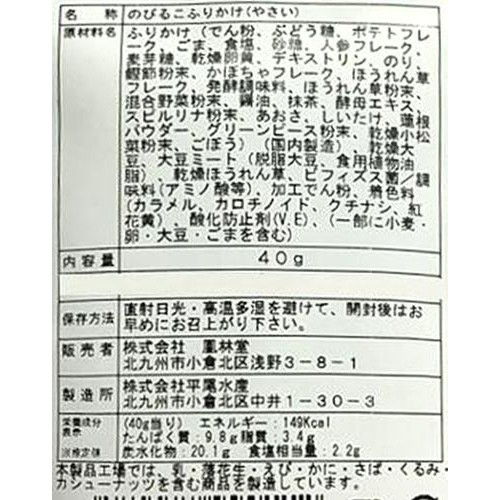 名　称 のびるこふりかけ(やさい)
原材料名 ふりかけ（でん粉、ぶどう糖、ポテトフレ
ーク、ごま、食塩、砂糖、人参フレーク、
麦芽糖、乾燥卵黄、デキストリン、のり、
鰹節粉末、かぼちゃフレーク、ほうれん草
フレーク、発酵調味料、ほうれん草粉末、
混合野菜粉末、醤油、抹茶、酵母エキス、
スピルリナ粉末、あおさ、しいたけ、蓮根
パウダー、グリーンピース粉末、乾燥小松
菜粉末、ごぼう）（国内製造）、乾燥大
豆、大豆ミート（脱脂大豆、食用植物油
脂）、乾燥ほうれん草、ビフィズス菌／調
味料(アミノ酸等)、加工でん粉、着色料
(カラメル、カロチノイド、クチナシ、紅
花黄）、酸化防止剤(V.E)、（一部に小麦・
卵・大豆・ごまを含む)
内容量 40g
保存方法 直射日光・高温多湿を避けて、開封後はお
早めにお召上がり下さい。
販売者 株式会社　鳳林堂
北九州市小倉北区浅野3－8－1
製造所 株式会社平尾水産
北九州市小倉北区中井1－30－3
栄養成分表示 (40g当り) エネルギー：149Kcal
たんぱく質：9.8g脂質：3.4g
※推定値 炭水化物：20.1g 食塩相当量：2.2g
本製品工場では、乳・落花生・えび・かに・さば・くるみ・
カシューナッツを含む商品を製造しています。